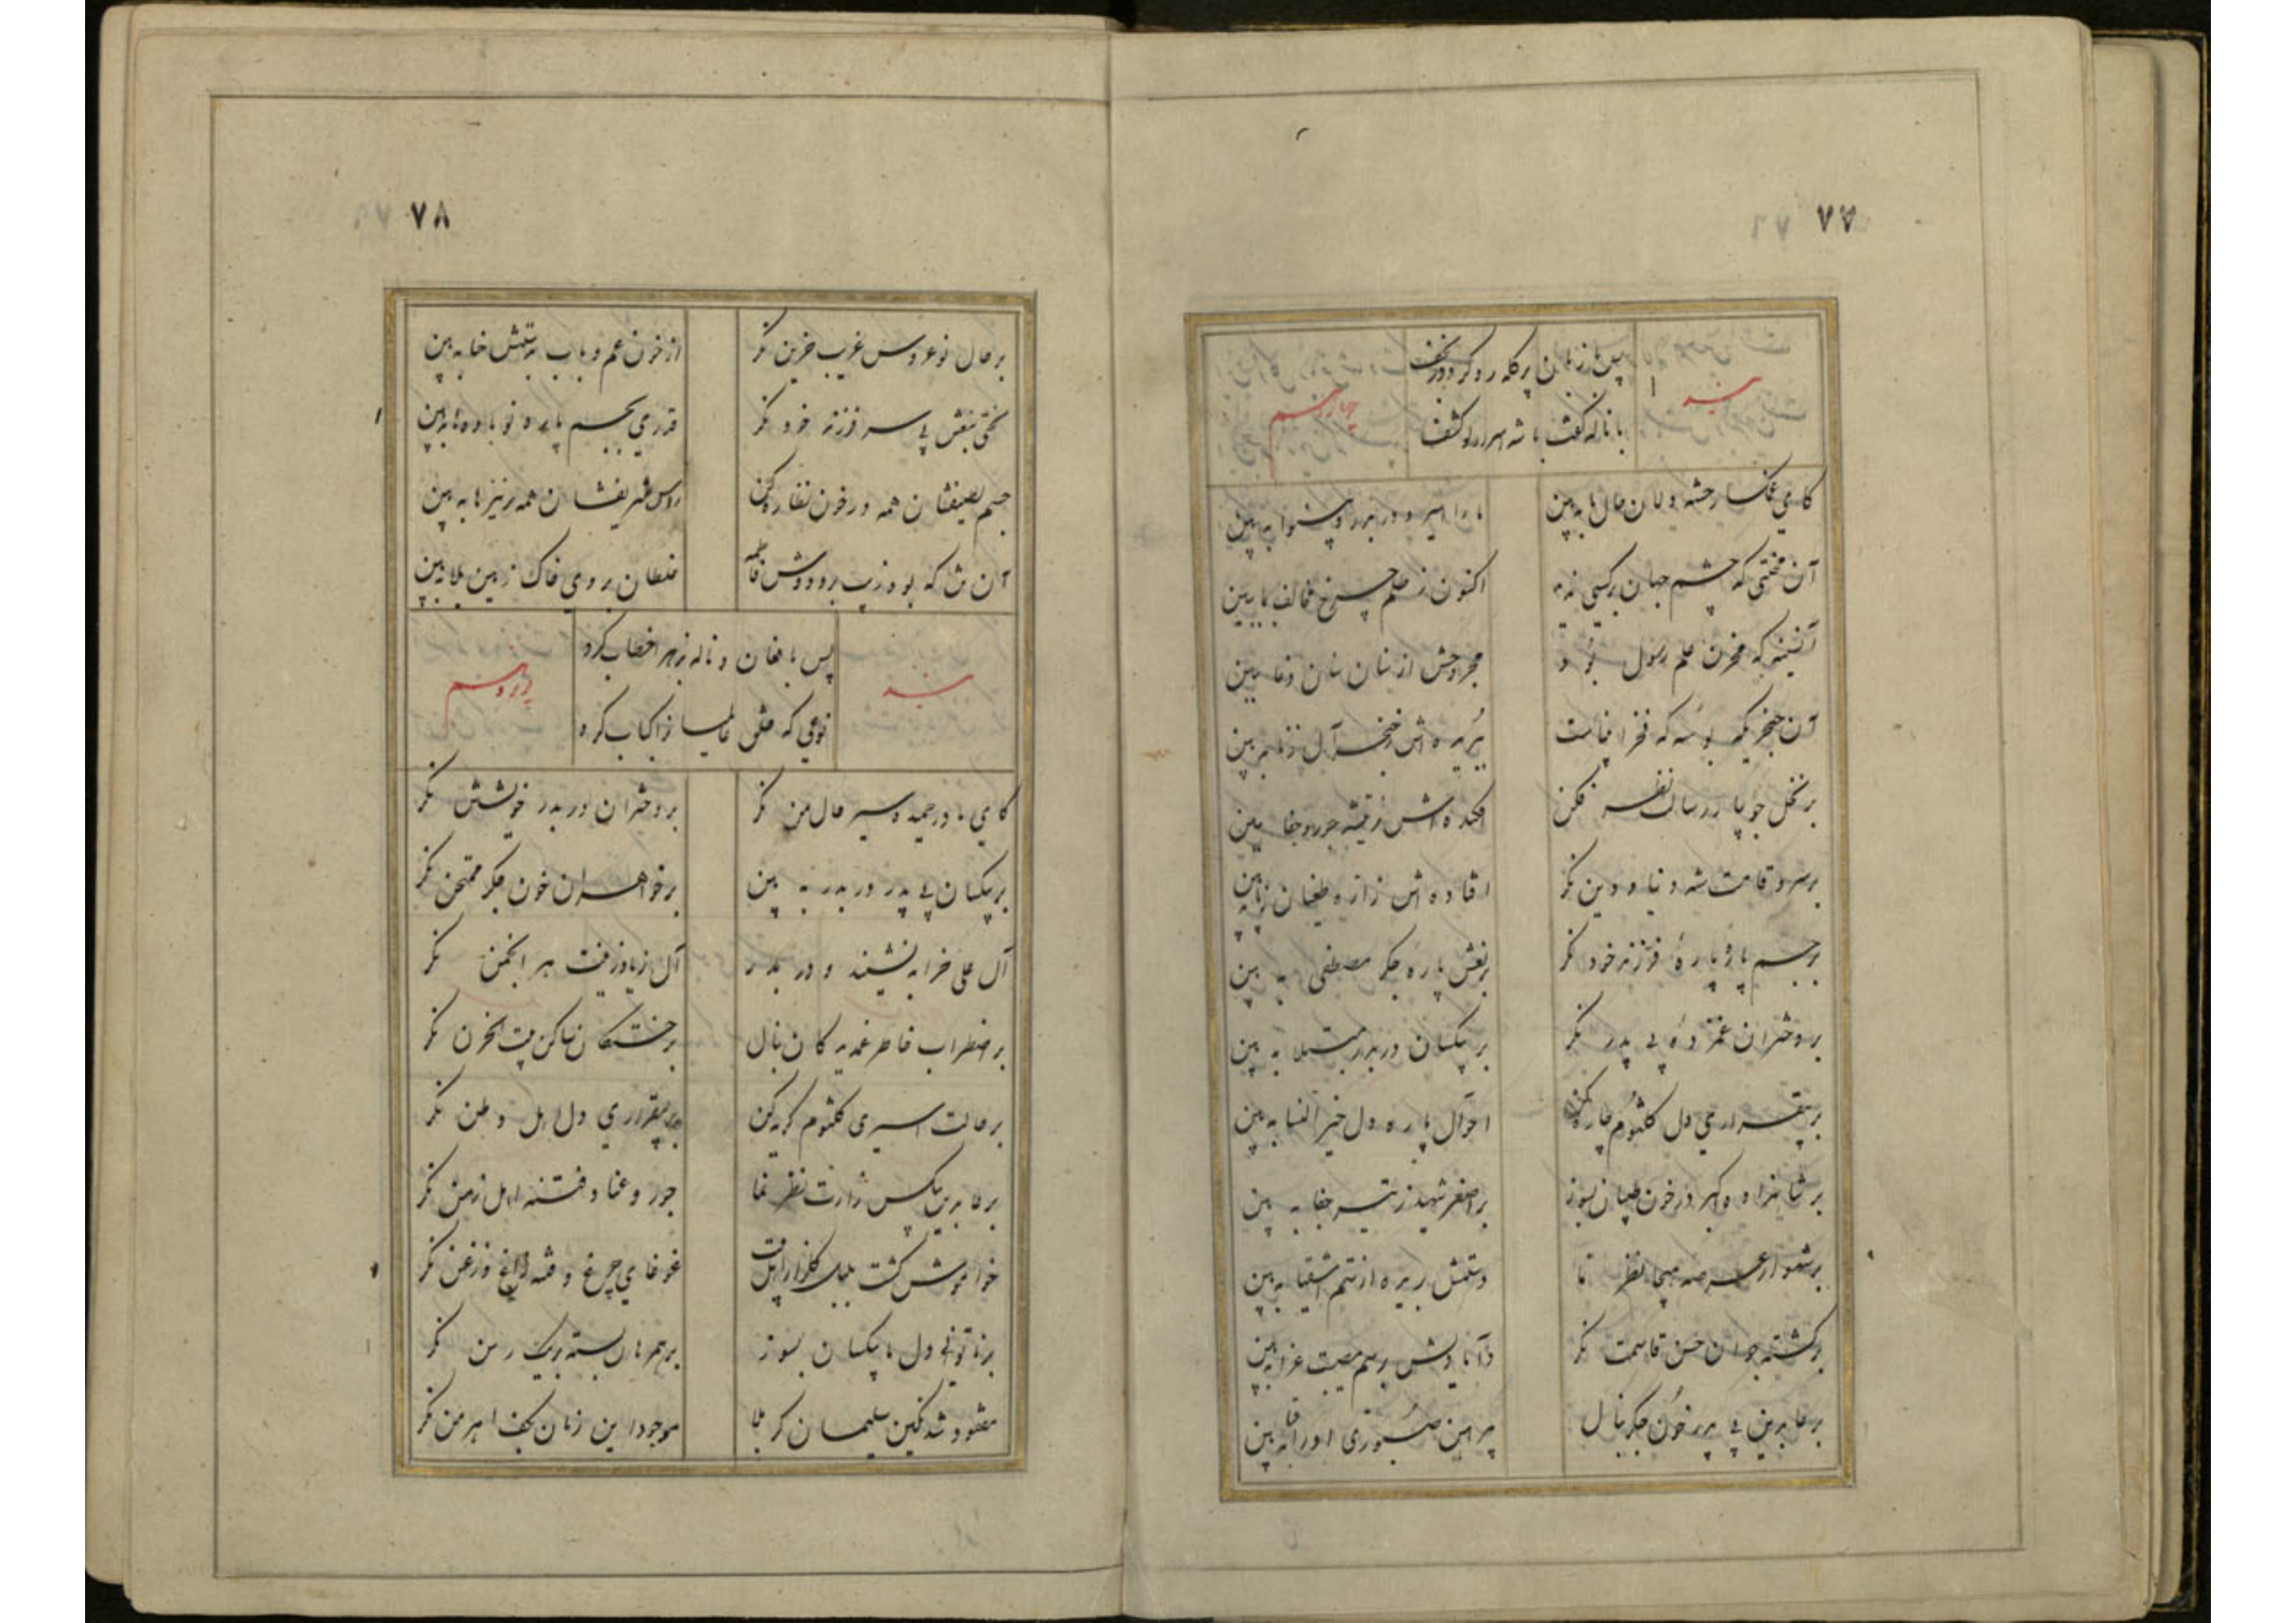 ۷۷
بند
پس با زبان پر گله رو کرد در نجف
با ناله گفت با شه اسرار لو کشف
چهاردهم
کای غمگسار خسته دلان حال ما به بین
ما را اسیر و در بدر و بینوا به بین
آن که چشم جهان بر کسی ندید
اکنون ز ظلم چرخ مخالف بما ببین
آن سینه که مخزن علم رسول بود
مجروحش از سنان سنان دغا ببین
آن حنجری که بوسه که فخر انماست
ببریده اش ز خنجر آل زنا ببین
بر نخل جویبار رسالت نظر فکن
افکنده اش ز تیشه جور و جفا ببین
بر سرو قامت شه دنیا و دین نگر
افتاده اش ز اره طغیان ز پا به بین
بر جسم پاره پارهٔ فرزند خود نگر
بر نعش پاره جگر مصطفی به بین
بر دختران غمزدهٔ بی پدر نگر
بر بیکسان در بدر مبتلا به بین
بر بیقراری دل کلثوم چاره کن
احوال پاره دل خیر النسا به بین
بر شاهزاده اکبر در خون طپان بسوز
بر اصغر شهید ز تیر جفا به بین
بر شهسوار عرصه هیجا نظر نما
دستش بریده از ستم اشقیا به بین
بر کشته جوان حسن قاسمت نگر
دامادیش برسم مصیبت عزا به بین
بر عابدین بی پدر خون جگر بنال
پیراهن صبوری او را قبا به بین
۷۸
بر حال نوعروس غریب حزین نگر
از خون عم و باب بدستش حنا به بین
لختی بنعش بی سر فرزند خود نگر
قدری بجسم پاره و نو باوه ها به بین
جسم لطیفشان همه در خون نظاره کن
روس شریفشان همه بر نیزها به بین
آن شاه که بود زیب بر و دوش فاطمه
غلطان بروی خاک زمین بلا به بین
بند
پس با فغان و ناله بزهرا خطاب کرد
نوعی که مثل عالمیان را کباب کرد
پانزدهم
کای مادر حمیده سیر حال من نگر
بر دختران در بدر خویشتن نگر
بر بیکسان بی پدر در بدر به بین
بر خواهران خون جگر ممتحن نگر
آل علی خرابه نشینند و در بدر
آل زیاد زینت هر انجمن نگر
بر اضطراب خاطر غمدیدگان بنال
بر خستگان ساکن بیت الحزن نگر
بر حالت اسیری کلثوم گریه کن
بر بیقراری دل اهل وطن نگر
بر عابدین بیکس زارت نظر نما
جور و عناد و فتنه اهل زمن نگر
خواموش گشت بلبل گلزار اهل بیت
غوغای چرغ و قهقه زاغ و زغن نگر
بر ناتونی دل ما بیکسان بسوز
بر همرهان بسته بیک رسن نگر
مفقود شد نگین سلیمان کربلا
موجود این زمان بکف اهرمن نگر